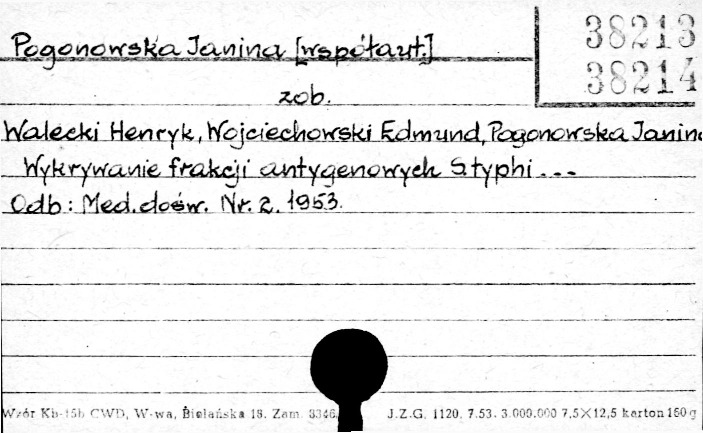 38213
38214
Pogonowska Janina [współaut.]
zob.
Walecki Henryk, Wojciechowski Edmund, Pogonowska Janina
Wykrywanie frakcji antygenowych S typhi ...
Odb: Med. dośw. Nr. 2. 1953.
Wzór Kb-15b CWD, W-wa, Bielańska 18. Zam. 3346. J.Z.G. 1120. 7.53. 3.000.000 7,5×12,5 karton 160 g